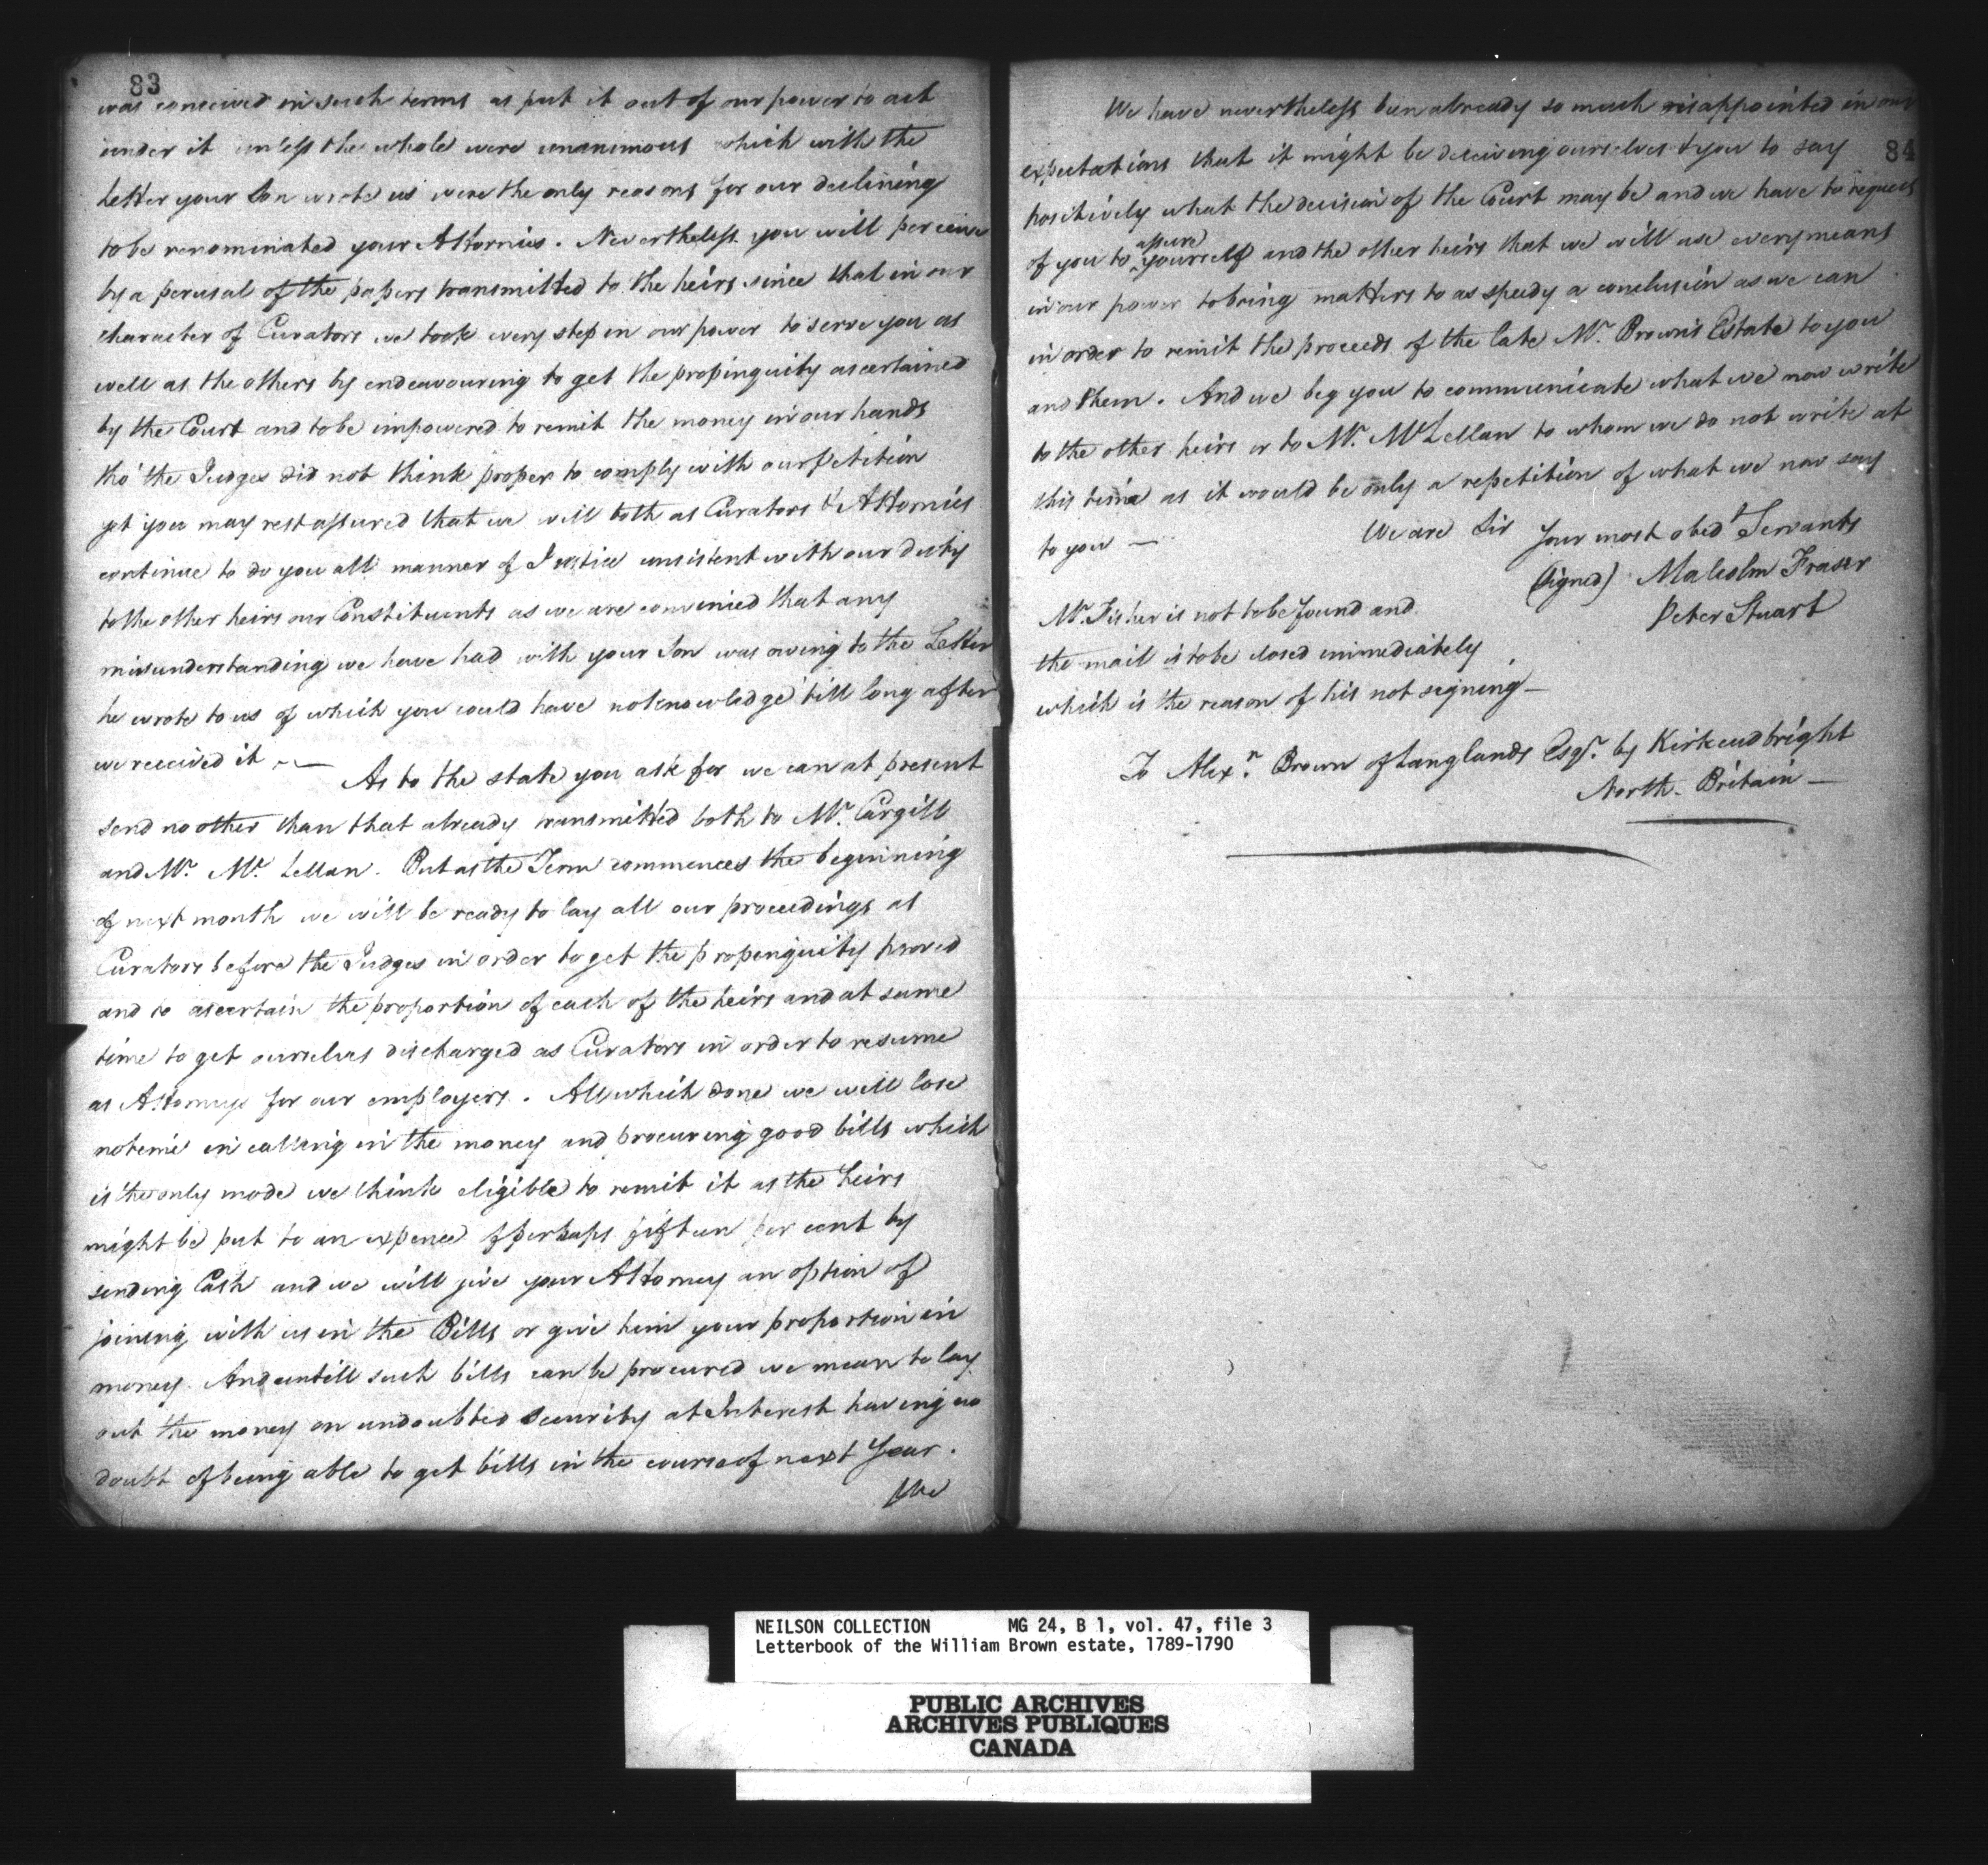 83
was conceived in such terms as put it out of our power to act
under it unless the whole were unanimous which with the
Letter your Son wrote us were the only reasons for our declining
to be renominated your Attornies. Nevertheless you will perceive
by a perusal of the papers transmitted to the heirs since that in our
character of Curators we took every step in our power to serve you as
well as the others by endeavouring to get the propinquity ascertained
by the Court and to be impowered to remit the money in our hands
tho' the Judges did not think proper to comply with our petition
yet you may rest assured that we will both as Curators & Attornies
continue to do you all manner of Justice consistent with our duty
to the other heirs our Constituents as we are convinced that any
misunderstanding we have had with your Son was owing to the Letter
he wrote to us of which you could have no knowledge till long after
we received it —
As to the state you ask for we can at present
send no other than that already transmitted both to Mr. Cargill
and Mr. Mc. Lellan. But as the Term commences the beginning
of next month we will be ready to lay all our proceedings as
Curators before the Judges in order to get the propenquity proved
and to ascertain the proportion of each of the heirs and at same
time to get ourselves discharged as Curators in order to resume
as Attorneys for our employers. All which done we will lose
no time in calling in the money and procuring good bills which
is the only mode we think eligible to remit it as the heirs
might be put to an expence of perhaps fifteen per cent by
sending Cash and we will give your Attorney an option of
joining with us in the Bills or give him your proportion in
money. And untill such bills can be procured we mean to lay
out the money on undoubted Security at Interest having no
doubt of being able to get bills in the course of next Year.
We
84
We have nevertheless been already so much disappointed in our
expectations that it might be deceiving ourselves & you to say
positively what the decision of the Court may be and we have to request
assure
of you to ^ yourself and the other heirs that we will use every means
in our power to bring matters to as speedy a conclusion as we can
in order to remit the proceeds of the late Mr. Brown's Estate to you
and them. And we beg you to communicate what we now write
to the other heirs or to Mr. McLellan to whom we do not write at
this time as it would be only a repetition of what we now say
to you —
We are Sir Your most obedt Servants
(signed) Malcolm Fraser
Peter Stuart
Mr. Fisher is not to be found and
the mail is to be closed immediately
which is the reason of his not signing —
To Alexr. Brown of Langlands Esqr. by Kirkcudbright
North Britain —
NEILSON COLLECTION MG 24, B 1, vol. 47, file 3
Letterbook of the William Brown estate, 1789-1790
PUBLIC ARCHIVES
ARCHIVES PUBLIQUES
CANADA